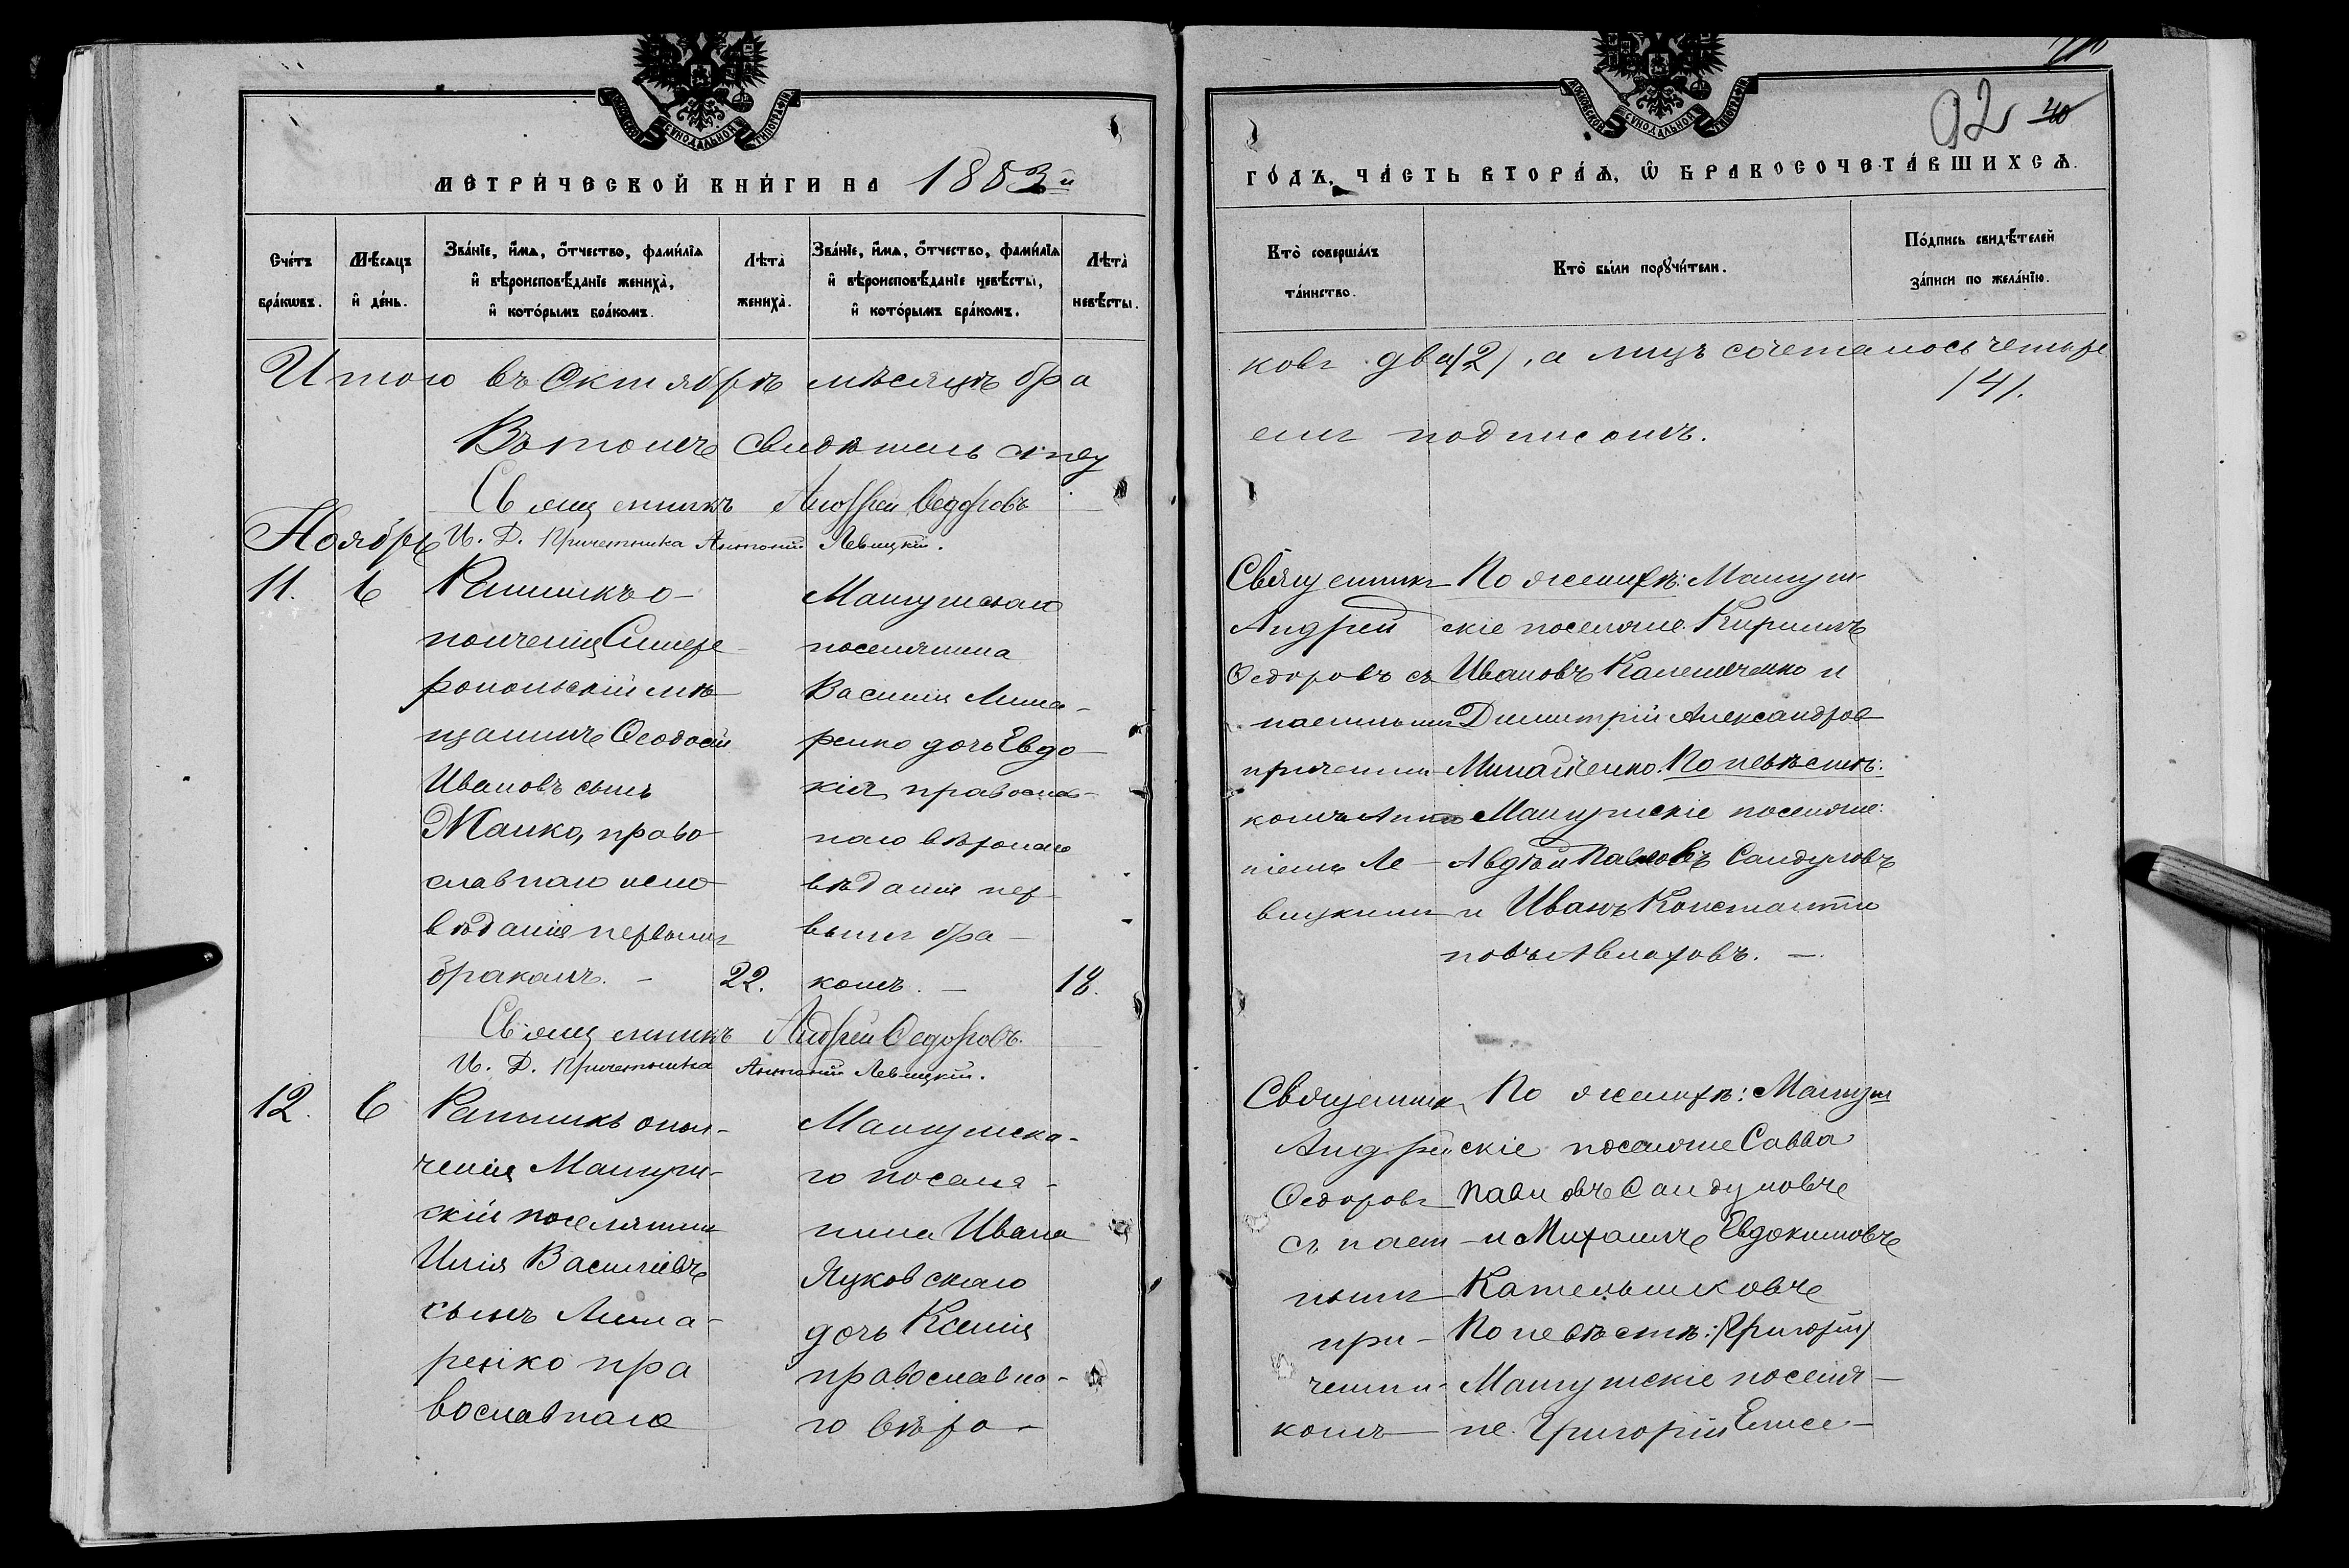 МОСКОВСКОЙ СѴНОДАЛЬНОЙ ТИПОГРАФІИ
МЕТРИЧЕСКОЙ КНИГИ НА 1883й
Счетъ браковъ.
Мѣсяцъ и день.
Званіе, имя, отчество, фамилія и вѣроисповѣданіе жениха, и которымъ бракомъ.
Лѣта жениха.
Званіе, имя, отчество, фамилія и вѣроисповѣданіе невѣсты, и которымъ бракомъ.
Лѣта невѣсты.
Итого въ Октябрѣ мѣсяцѣ бра
Въ томъ свидѣтельству
Священникъ Андрей Ѳедоровъ
Ноябрь И. Д. Причетника Антоній Левицкій.
11. 6
Ратникъ о-
полченія Симфе-
ропольскій мѣ-
щанинъ Ѳеодосій
Ивановъ сынъ
Манко, право-
славнаго испо-
вѣданія первымъ
бракомъ. - 22.
Мангушскаго
поселянина
Василія Лима-
ренко дочь Евдо-
кія, православ-
наго вѣроиспо
вѣданія пер-
вымъ бра-
комъ. - 18.
Священникъ Андрей Ѳедоровъ.
И. Д. Причетника Антоній Левицкій.
12. 6
Ратникъ опол-
ченія Мангуш-
скій поселянинъ
Илія Василіевъ
сынъ Лима-
ренко пра
вославнаго
Мангушска-
го поселя-
нина Ивана
Яцковскаго
дочь Ксенія
православна-
го вѣро-
МОСКОВСКОЙ СѴНОДАЛЬНОЙ ТИПОГРАФІИ
92 40
ГОДЪ, ЧАСТЬ ВТОРАЯ, Ѡ БРАКОСОЧЕТАВШИХСЯ.
Кто совершалъ таинство.
Кто были поручители.
Подпись свидѣтелей записи по желанію.
ковъ два /2/, а лицъ сочеталось четыре
/4/.
емъ подписомъ.
Священникъ
Андрей
Ѳедоровъ съ
наемнымъ
причетни-
комъ Анто
ніемъ Ле-
вицкимъ
По женихѣ: Мангуш-
скіе поселяне. Кириллъ
Ивановъ Калениченко и
Димитрій Александров
Минайленко. По невѣстѣ:
Мангушскіе поселяне:
Авдѣй Павловъ Сандуловъ
и Иванъ Константи
новъ Авлаховъ. -
Священникъ
Андрей
Ѳедоровъ
съ наем-
нымъ
при-
четни-
комъ
По женихѣ: Мангуш
скіе поселяне Савва
Павловъ Сандуловъ
и Михаилъ Евдокимовъ
Котельниковъ
По невѣстѣ: /Григорій/
Мангушскіе поселя-
не. Григорій Елисе-